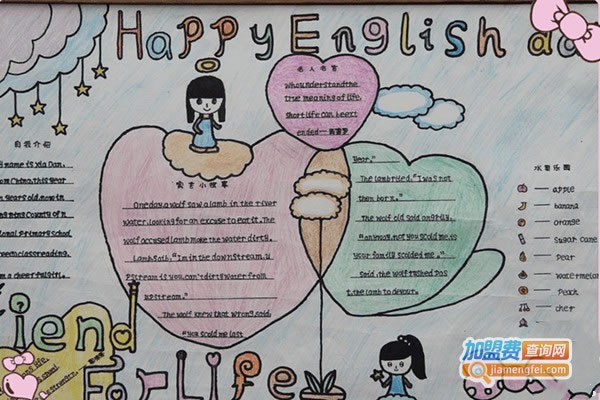 Happy English
名人名言
Who understand the
true meaning of life,
short life can be ext
ended——
自我介绍
name is Xia Dan.
om China, this year
years old, now in
County
ional Primary school
roomclassreading.
a cheerful girl.
寓言小故事
One day, a wolf saw a lamb in the river
water, looking for an excuse to eat it. The
wolf accused lamb make the water dirty.
Lamb saih, "I'm in the downstream, u
pstream is you, can't dirty water from
upstream."
The wolf knew that wrong, said,
"you scold me last
year."
The lamb ryied, "I was not
then born."
The wolf old said angrily,
"anyway, not you scold me is
your family scolded me."
Said, the wolf rushed pas
t, the lamb to devour.
水果乐园
apple
banana
orange
Sugar cane
pear
watermelon
Peach
cher
iend
For Life
加盟费查询网
jiamengfei.com